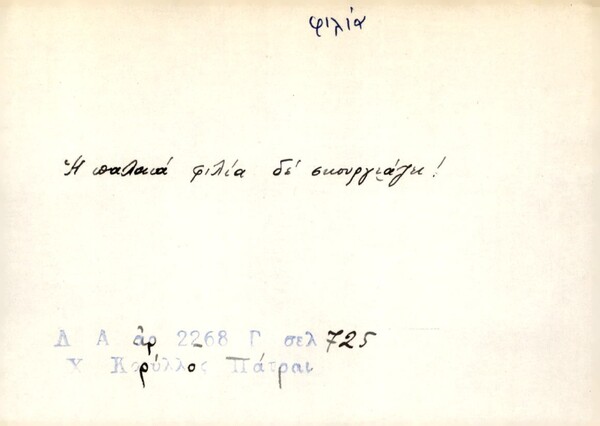 φιλία
Ἡ παλαιά φιλία δέ σκουργιάζει!
Λ Α ἀρ 2268 Γ σελ 725
Χ Κορύλλος Πάτραι